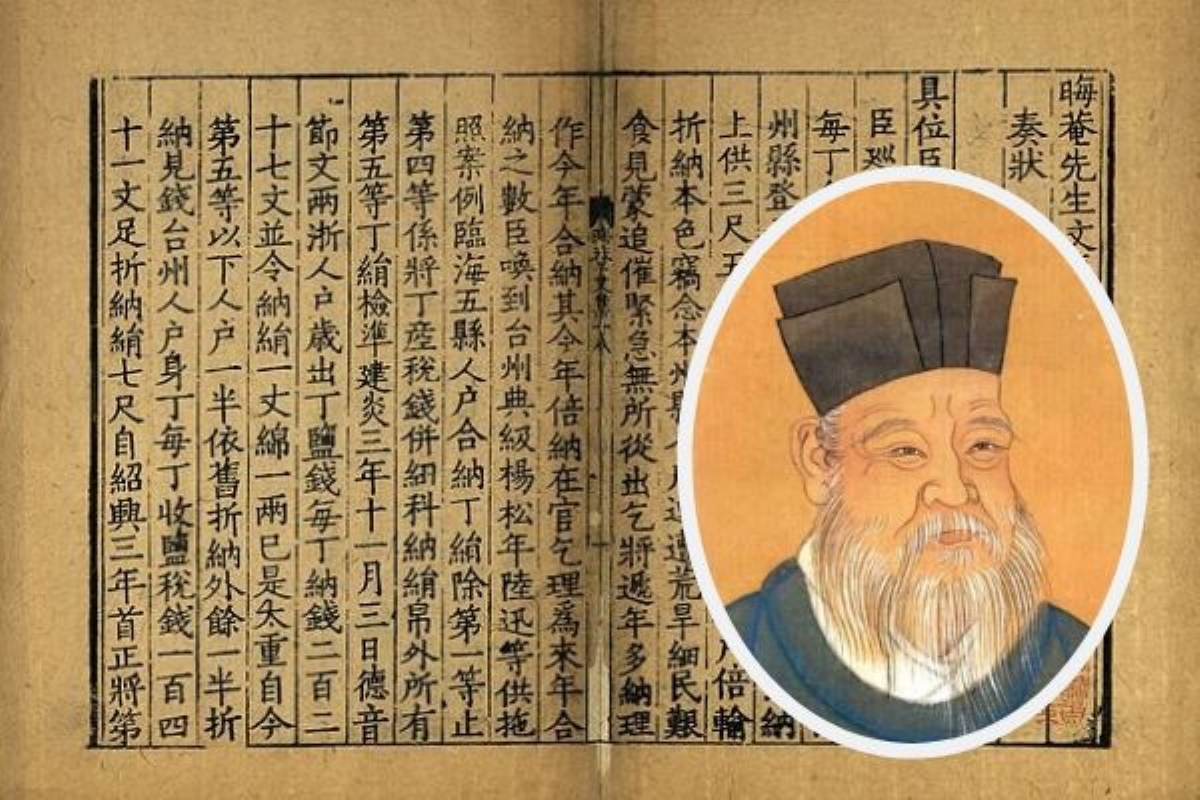 晦菴先生文
奏狀
具位臣
臣
每丁
州縣登
納
上供三尺五
倍輸
折納本色竊念本州
荒旱細民艱
食見蒙追催緊急無所從出乞將遞年多納理
作今年合納其今年倍納在官乞理爲來年合
納之數臣喚到台州典級楊松年陸迅等供拖
照案例臨海五縣人户合納丁絹除第一等止
第四等係將丁産税錢併紐科納絹帛外所有
第五等丁絹檢準建炎三年十一月三日德音
節文兩浙人户歳出丁鹽錢每丁納錢二百二
十七文並令納絹一丈綿一兩已是太重自今
第五等以下人户一半依舊折納外餘一半折
納見錢台州人户身丁每丁收鹽税錢一百四
十一文足折納絹七尺自紹興三年首正將第